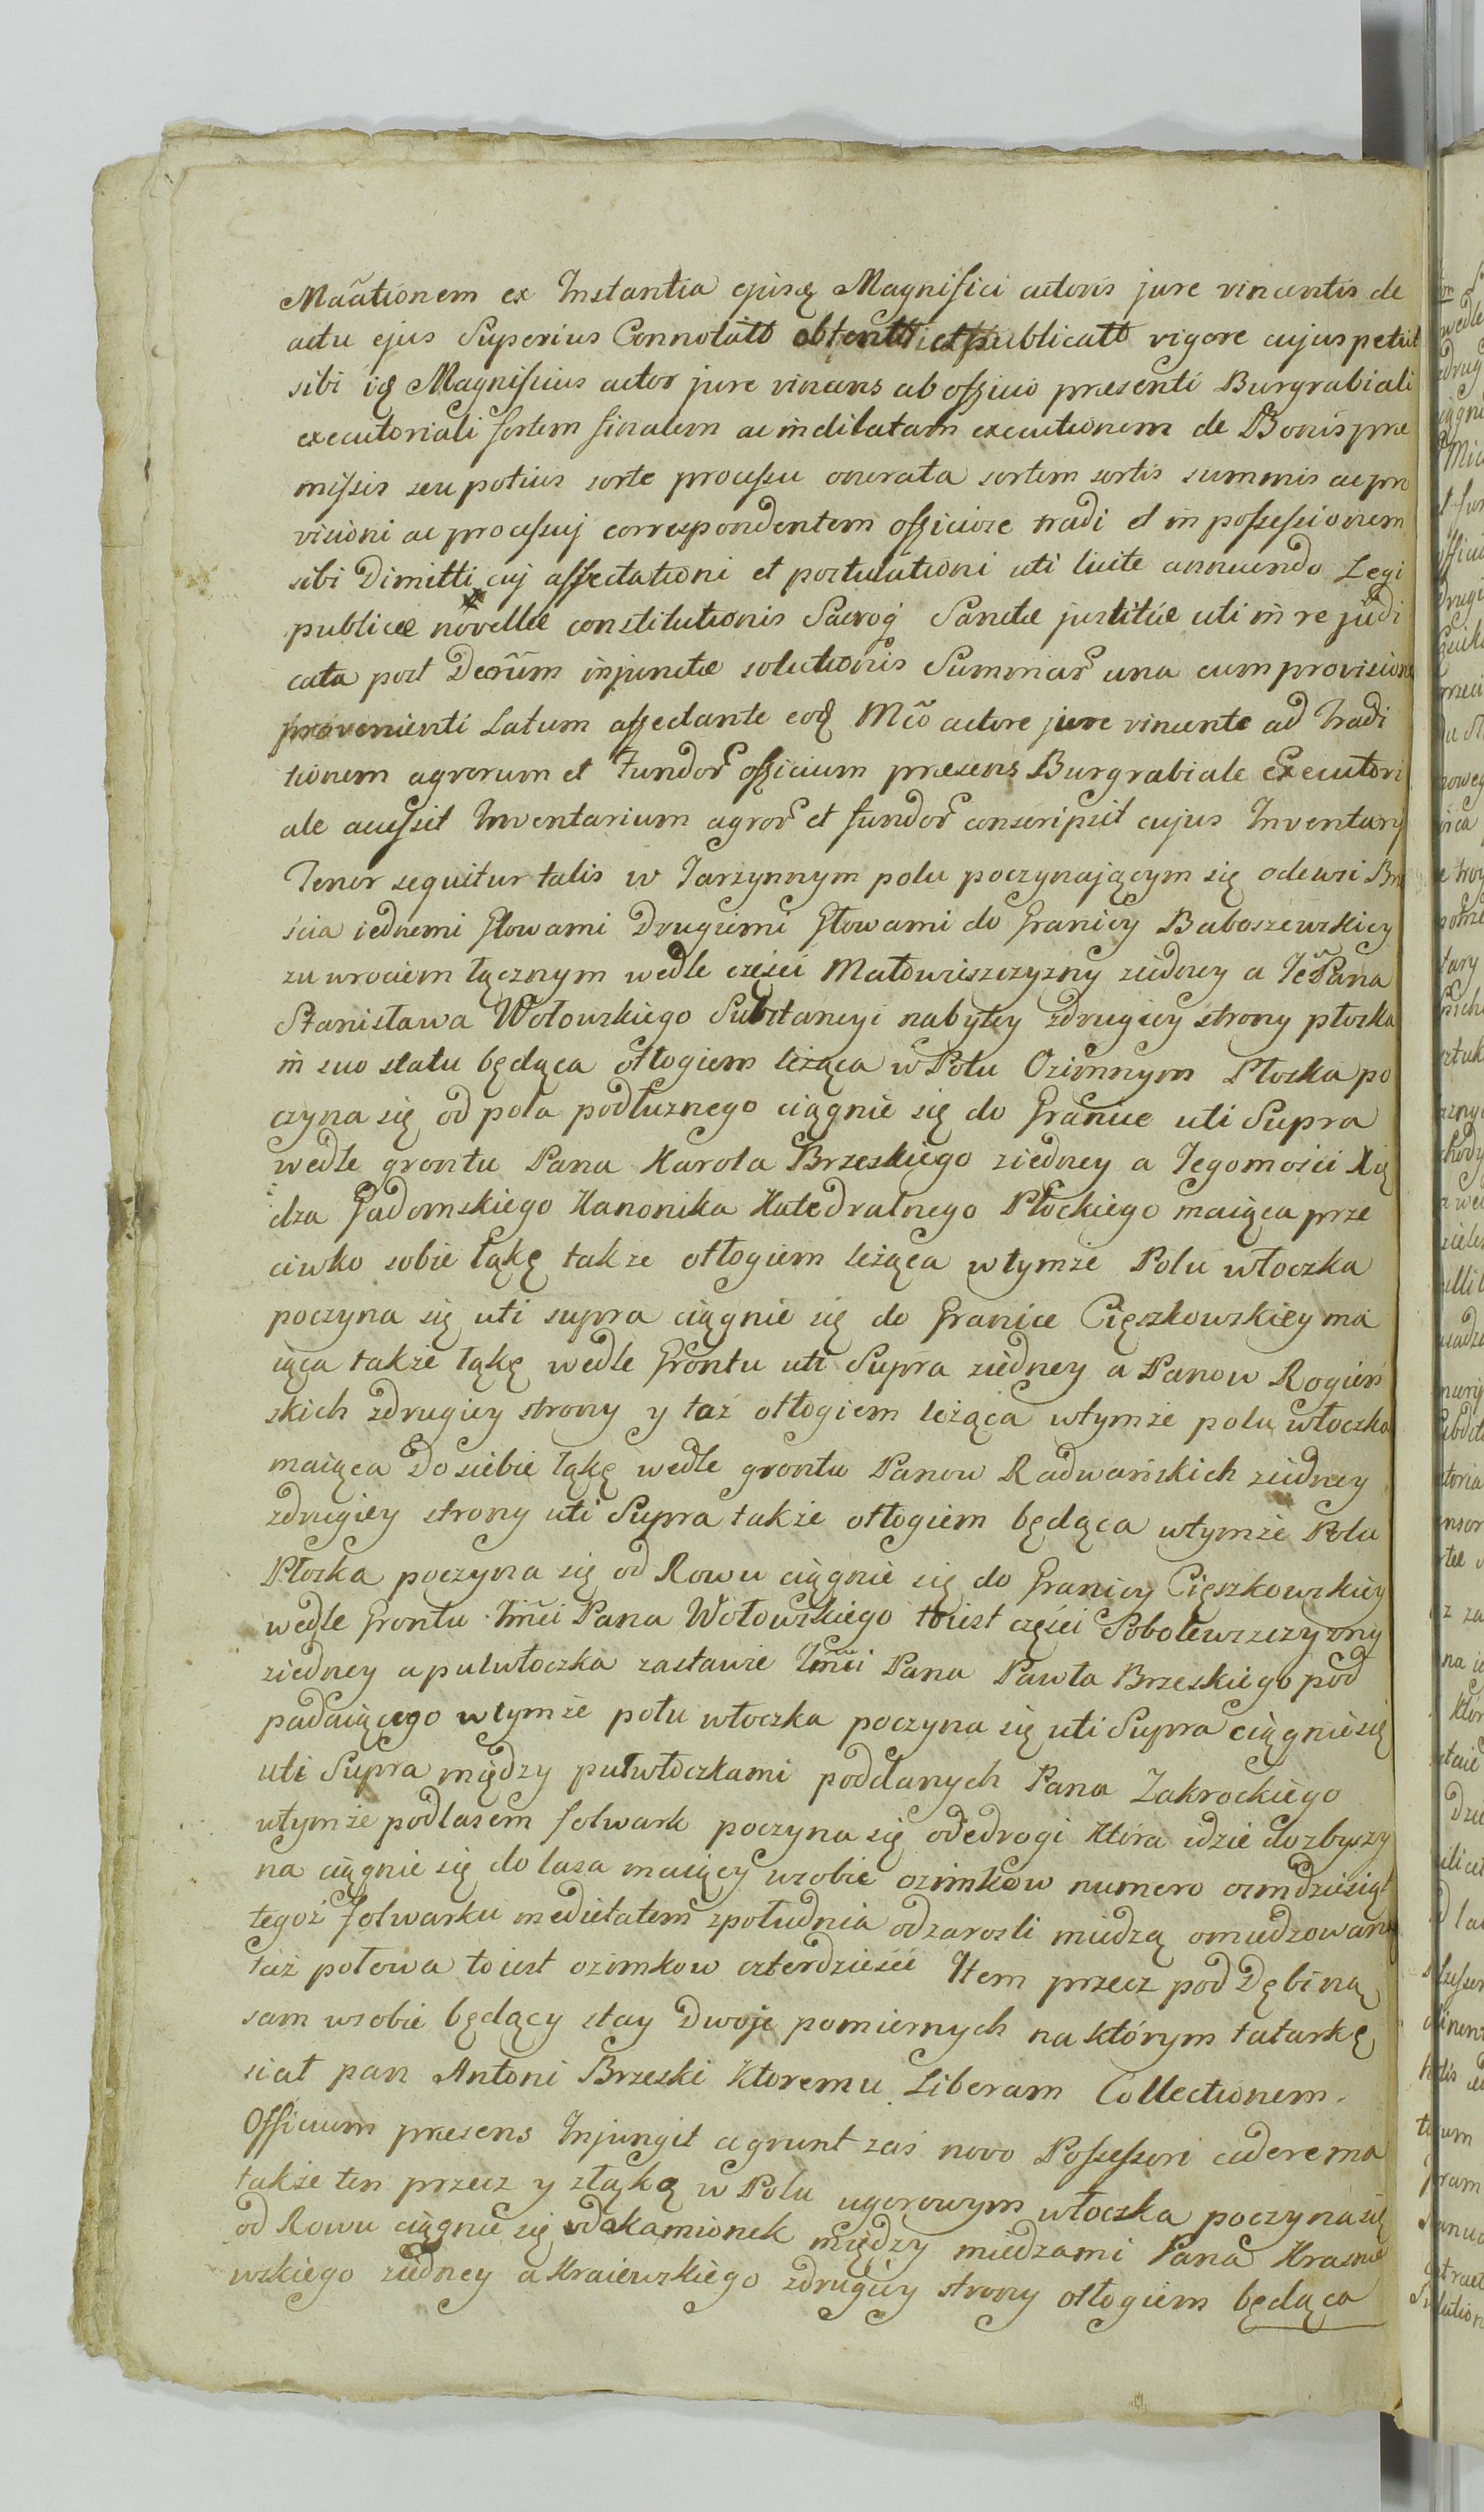 Maãtionem ex Instantia ejusq Magnifici actoris jure vincentis de
actu ejus Superius Connotato obtenti et publicato vigore cujus petiit
sibi iq Magnificus actor jure vincens ab officio præsenti Burgrabiali
executoriali fortem finalem ac indilatam executionem de Bonis præ
missis seu potius sorte processu onerata sortem sortis summis ac pro
visioni ac processuj correspondentem officiose tradi et in possessionem
sibi Dimitti cuj affectationi et postulationi uti licite annuendo Legi
publicæ novellæ constitutionis Sacroq Sanctæ justitiæ uti in re judi
cata post Decrũm injunctæ solutionis Summar una cum provisione
provenienti Latum affectante eoq Mcõ actore jure vincente ad Tradi
tionem agrorum et Fundor officium præsens Burgrabiale Executori
ale accessit Inventarium agror et fundor conscripsit cujus Inventarij
Tenor sequitur talis w Jarzynnym polu poczynającym się odewsi Brze
ścia iednemi Głowami Drugiemi Głowami do Granicy Baboszewskiey
zuwrociem łącznym wedle części Małowiszczyzny ziedney a Je Pana
Stanisława Wołowskiego Substancyi nabytey zdrugiey strony płoska
in suo statu będąca ołłogiem leżąca w Polu Ozimnym Płoska po
czyna się od pola podłuznego ciągnie się do Granice uti Supra
wedle grontu Pana Karola Brzeskiego ziedney a Jegomości Xię
dza Gadomskiego Kanonika Katedralnego Płockiego maiąca prze
ciwko sobie łąkę także ołłogiem leżąca wtymze Polu włoczka
poczyna się uti supra ciągnie się do Granice Cięszkowskiey ma
iąca także łąkę wedle Grontu uti Supra ziedney a Panow Rogień
skich zdrugiey strony y taż ołłogiem leżąca wtymże polu włoczka
maiąca Do siebie łąkę wedle grontu Panow Radwańskich ziedney
zdrugiey strony uti Supra także ołłogiem będąca wtymże Polu
Płoska poczyna się od Rowu ciągnie się do Granicy Cięszkowskiey
wedle Grontu Jmći Pana Wołowskiego toiest części Sobolewszczyzny
ziedney a pulwłoczka zastawie Jmći Pana Pawła Brzeskiego pod
padaiącego wtymże polu włoczka poczyna się uti Supra ciągnie się
uti Supra między pułwłoczkami poddanych Pana Zakrockiego
wtymże podlasem folwark poczyna się odedrogi która idzie dozbyszy
na ciągnie się do lasa maiący wsobie ozimkow numero ośmdziesiąt
tegoż folwarku medietatem zpołudnia odzarosli miedzą omiedzowaną
taż połowa toiest ozimkow czterdzieści Item przecz pod Dębiną
sam wsobie będący stay Dwoje pomiernych na którym tatarkę
siał pan Antoni Brzeski Ktoremu Liberam Collectionem
Officium præsens Injungit a grunt zaś novo Possessori cedere ma
także ten przecz y złąką w Polu ugorowym włoczka poczyna się
od Rowu ciągnie się odakamionek między miedzami Pana Krasne
wskiego ziedney a Kraiewskiego zdrugiey strony ołłogiem będąca